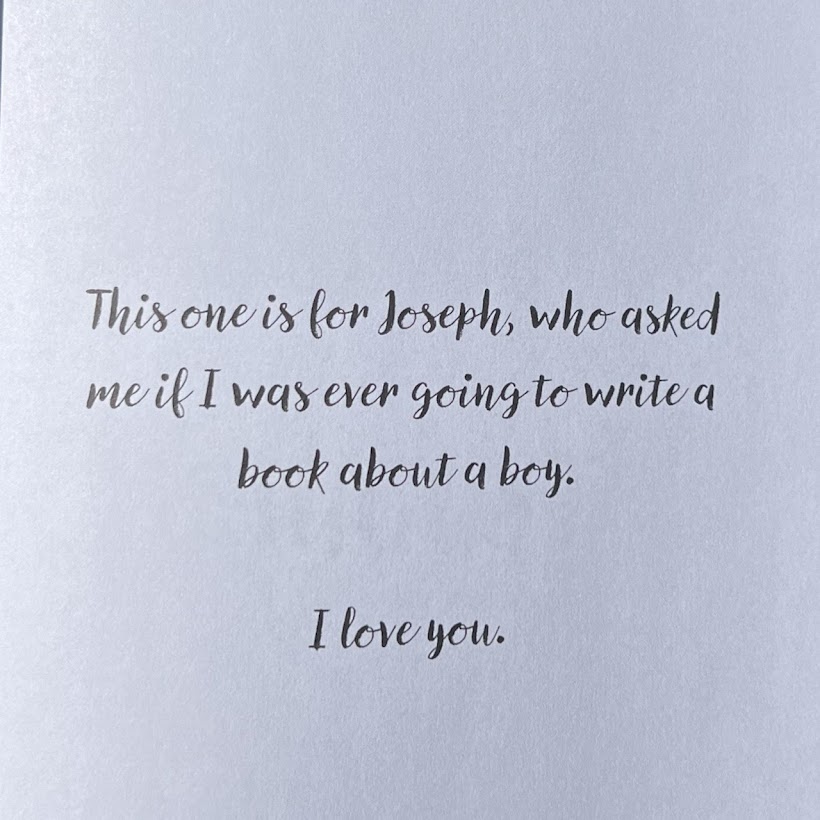 This one is for Joseph, who asked
me if I was ever going to write a
book about a boy.
I love you.